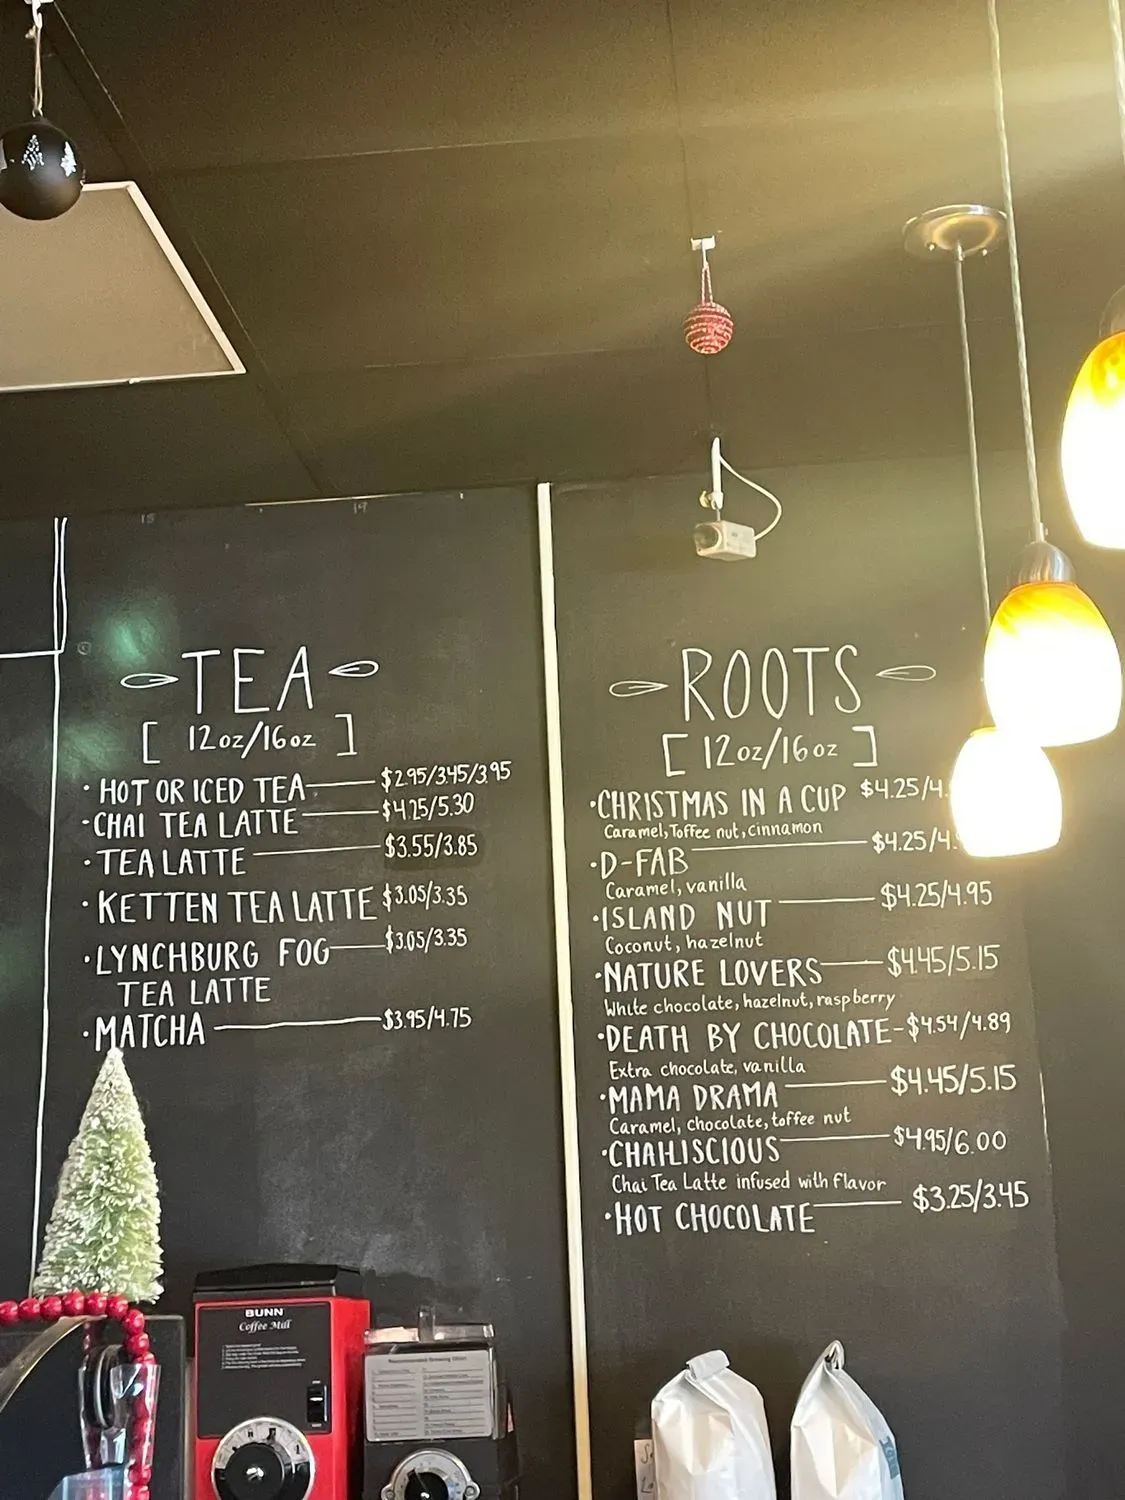 TEA
[ 12oz/16oz ]
· HOT OR ICED TEA $2.95/3.45/3.95
· CHAI TEA LATTE $4.25/5.30
· TEA LATTE $3.55/3.85
· KETTEN TEA LATTE $3.05/3.35
· LYNCHBURG FOG $3.05/3.35
TEA LATTE
· MATCHA $3.95/4.75
ROOTS
[ 12oz/16oz ]
· CHRISTMAS IN A CUP $4.25/4.
Caramel, Toffee nut, cinnamon
· D-FAB $4.25/4.
Caramel, vanilla
· ISLAND NUT $4.25/4.95
Coconut, hazelnut
· NATURE LOVERS $4.45/5.15
White chocolate, hazelnut, raspberry
· DEATH BY CHOCOLATE - $4.54/4.89
Extra chocolate, vanilla
· MAMA DRAMA $4.45/5.15
Caramel, chocolate, toffee nut
· CHAI-LISCIOUS $4.95/6.00
Chai Tea Latte infused with flavor
· HOT CHOCOLATE $3.25/3.45
BUNN
Coffee Mill